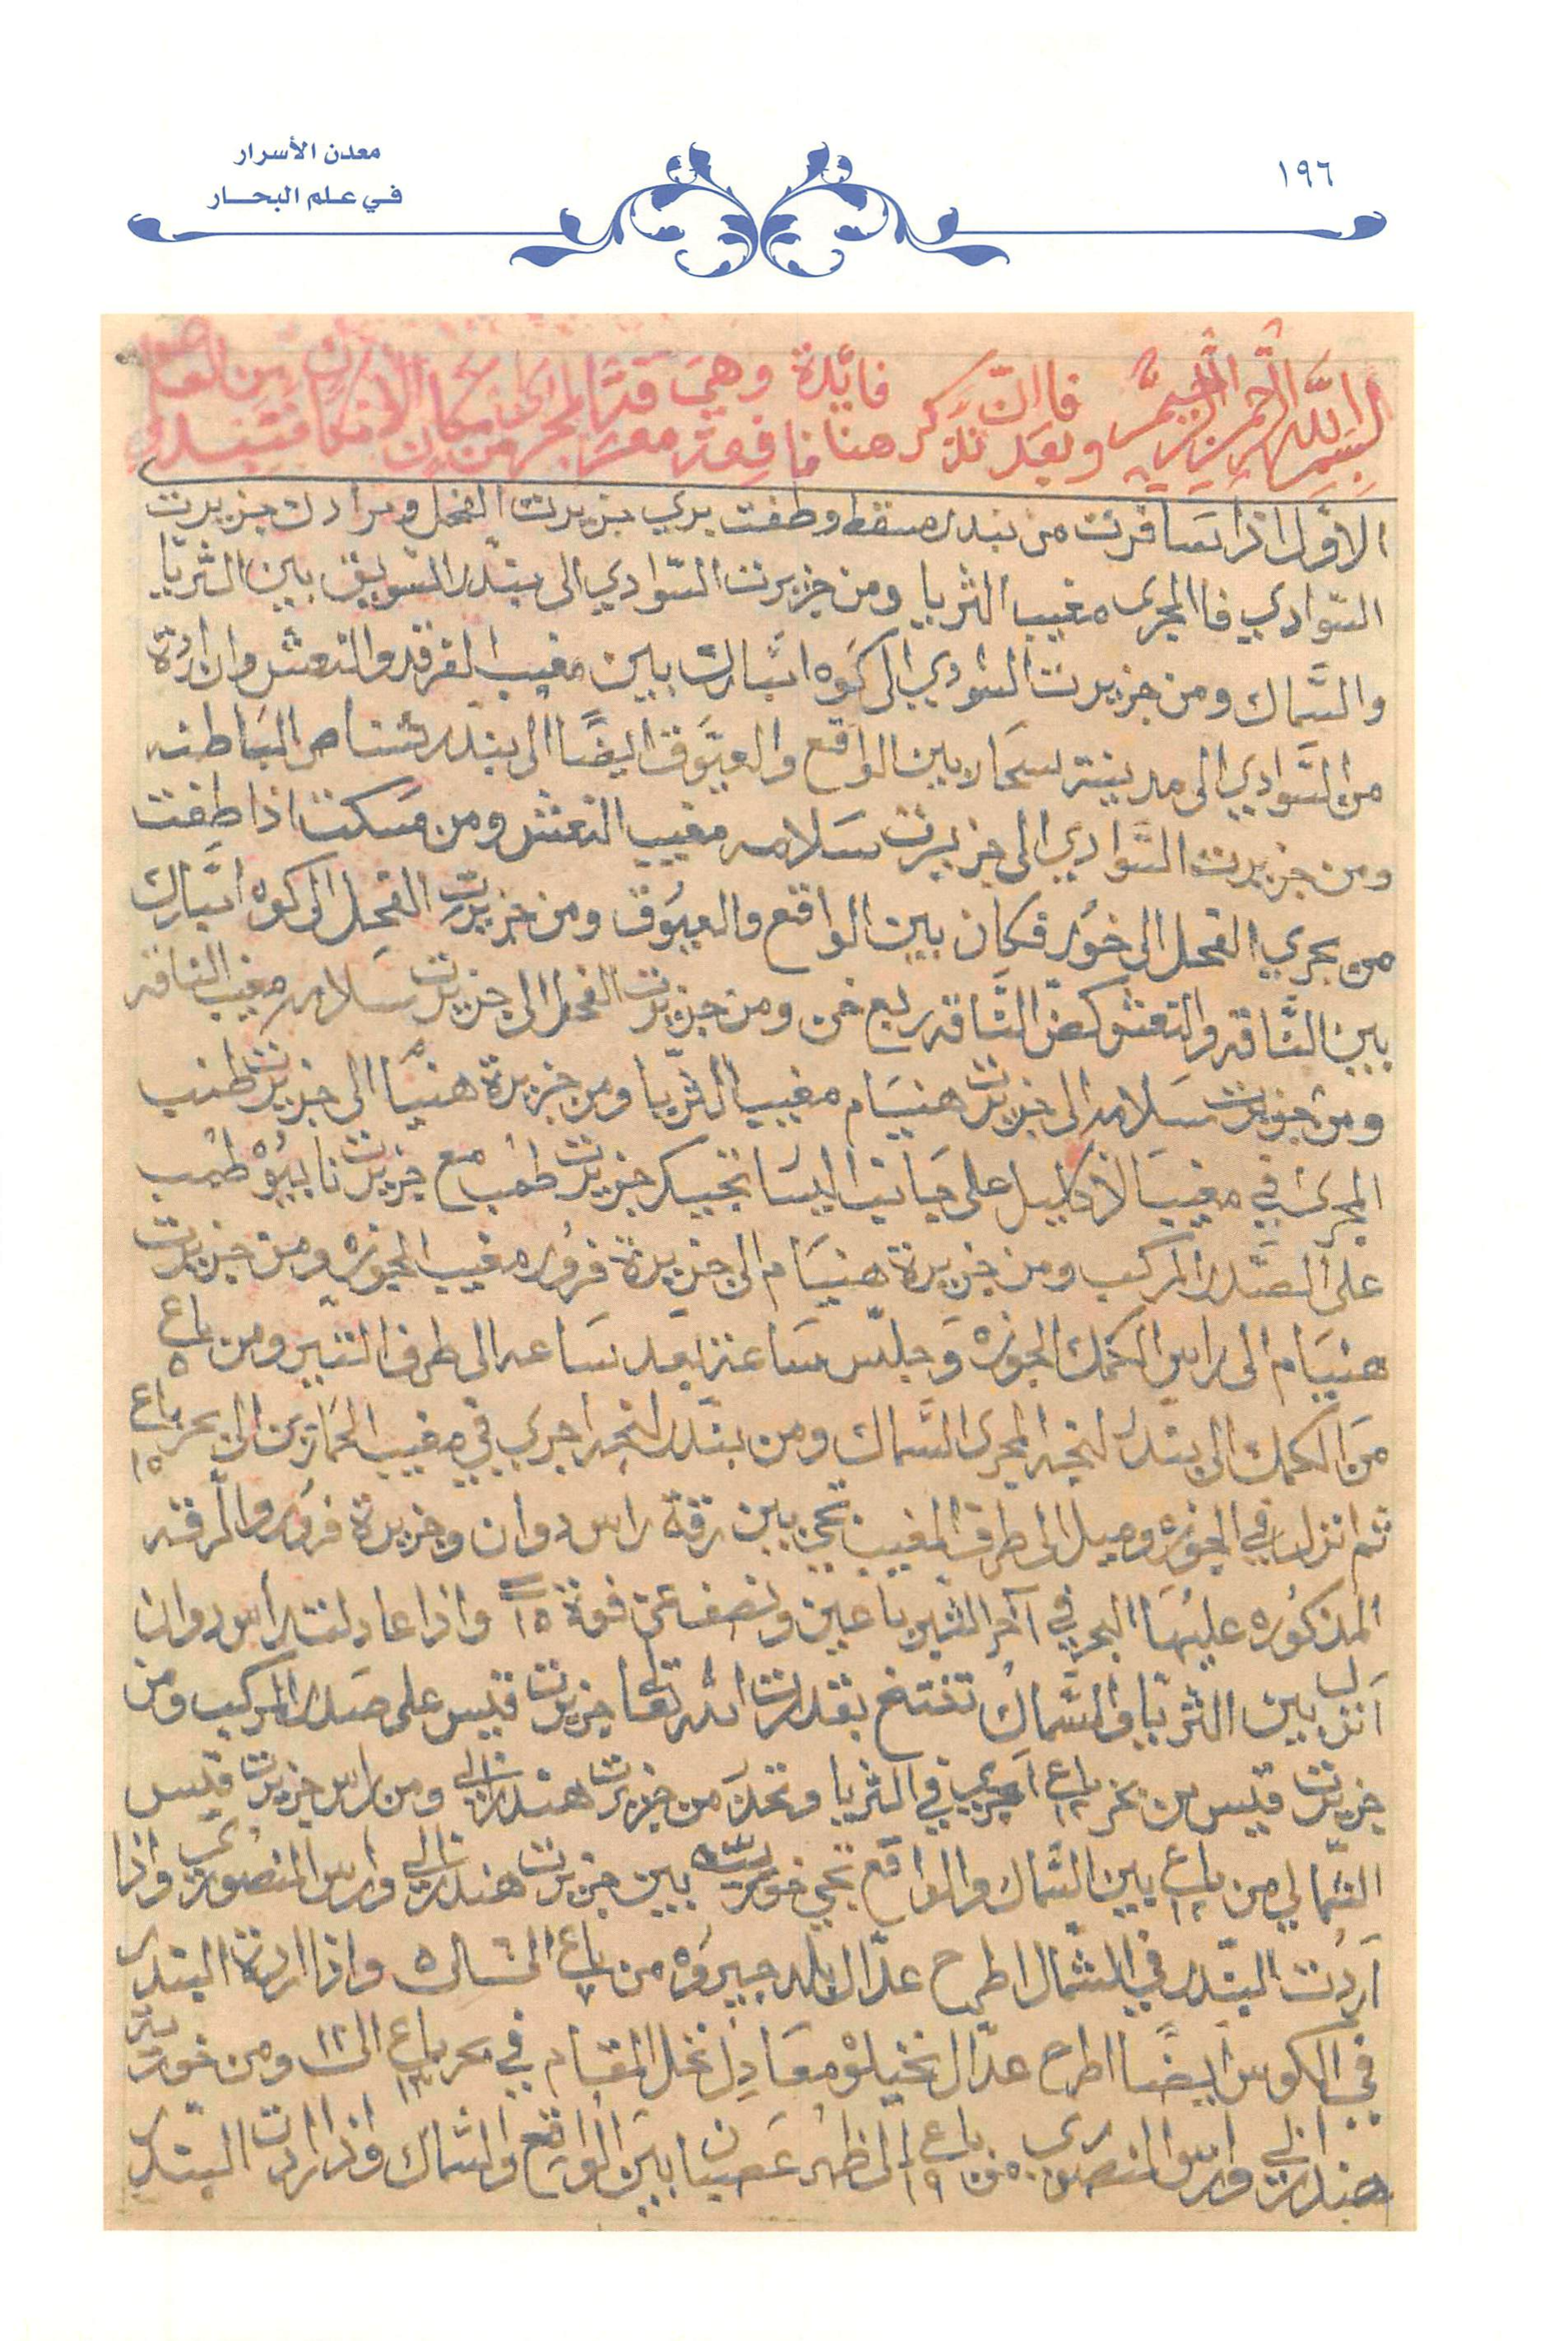 ١٩٦
معدن الأسرار
في علم البحـار
بسم الله الرحمن الرحيم فاان فايدة وهي
وبعد نذكر هنا نافعة من مكان
الاول اذا سافرت من بندر مسقط وطفت بري جزيرت الفحل ومرادك جزيرت
السوادي فاالمجرى مغيب الثريا ومن جزيرت السوادي الى بندر السويق بين الثريا
والسماك ومن جزيرت السودي الى كوه اتبارك بين مغيب الفرقد والنعش وان اردة
من السوادي الى مدينة سحار بين الواقع والعيوق ايضا الى بندر شناص الباطنه
ومن جزيرت السوادي الى جزيرت سلامه مغيب النعش ومن مسكت اذا طفت
من بحري الفحل الى خور فكان بين الواقع والعيوق ومن جزيرت الفحل الى كوه اتبارك
بين الناقه والنعش كض الناقه ربع خن ومن جزيرت الفحل الى جزيرت سلامه مغيب الناقه
ومن جزيرت سلامه الى جزيرت هنيام مغيب الثريا ومن جزيرة هنيام الى جزيرت طنب
المجرى في مغيب الاكليل على حيانب اليسا تجيك جزيرت طنب مع جزيرت نابيؤ طنب
على الصدر المركب ومن جزيرة هنيام الى جزيرة فرور مغيب الجوزه ومن جزيرت
هنيام الى راس الكمك الجوزه وجلس ساعة بعد ساعه الى طرف التير ومن باع ٥
من الكمك الى بندر لنجه المجرى السماك ومن بندر لنجه اجري في مغيب الحمارين الى بحر باع ١٥
ثم انزل في الجوزه وميل الى طرف المغيب تجي بين رقة راس دوان وجزيرة فرور والرقه
المذكوره عليها البحر في آخر الثير باعين ونصف عن فوة ١٥ واذا عادلت راس دوان
انزل بين الثريا والسماك تفتتح بقدرت الله تعا جزيرت قيس على صدر المركب ومن
جزيرت قيس من بحر باع ١٢ اجري في الثريا وتحذر من جزيرت هندرابي ومن راس جزيرت قيس
الشمالي من باع ١٢ بين السماك والواقع تجي خوريت بين جزيرت هندرابي وراس المنصوري واذا
اردت البندر في الشمال اطرح عدال بلد جيروه من باع ٧ الى ٥ واذا اردة البندر
في الكوس ايضا اطرح عدال نخيلوه معادل نخل المقام في بحر باع ١٣ الى ١٢ ومن خوريت
هندرابي وراس المنصوري من باع ١٩ الى ظهر عصيان بين الواقع والسماك واذا اردت البندر